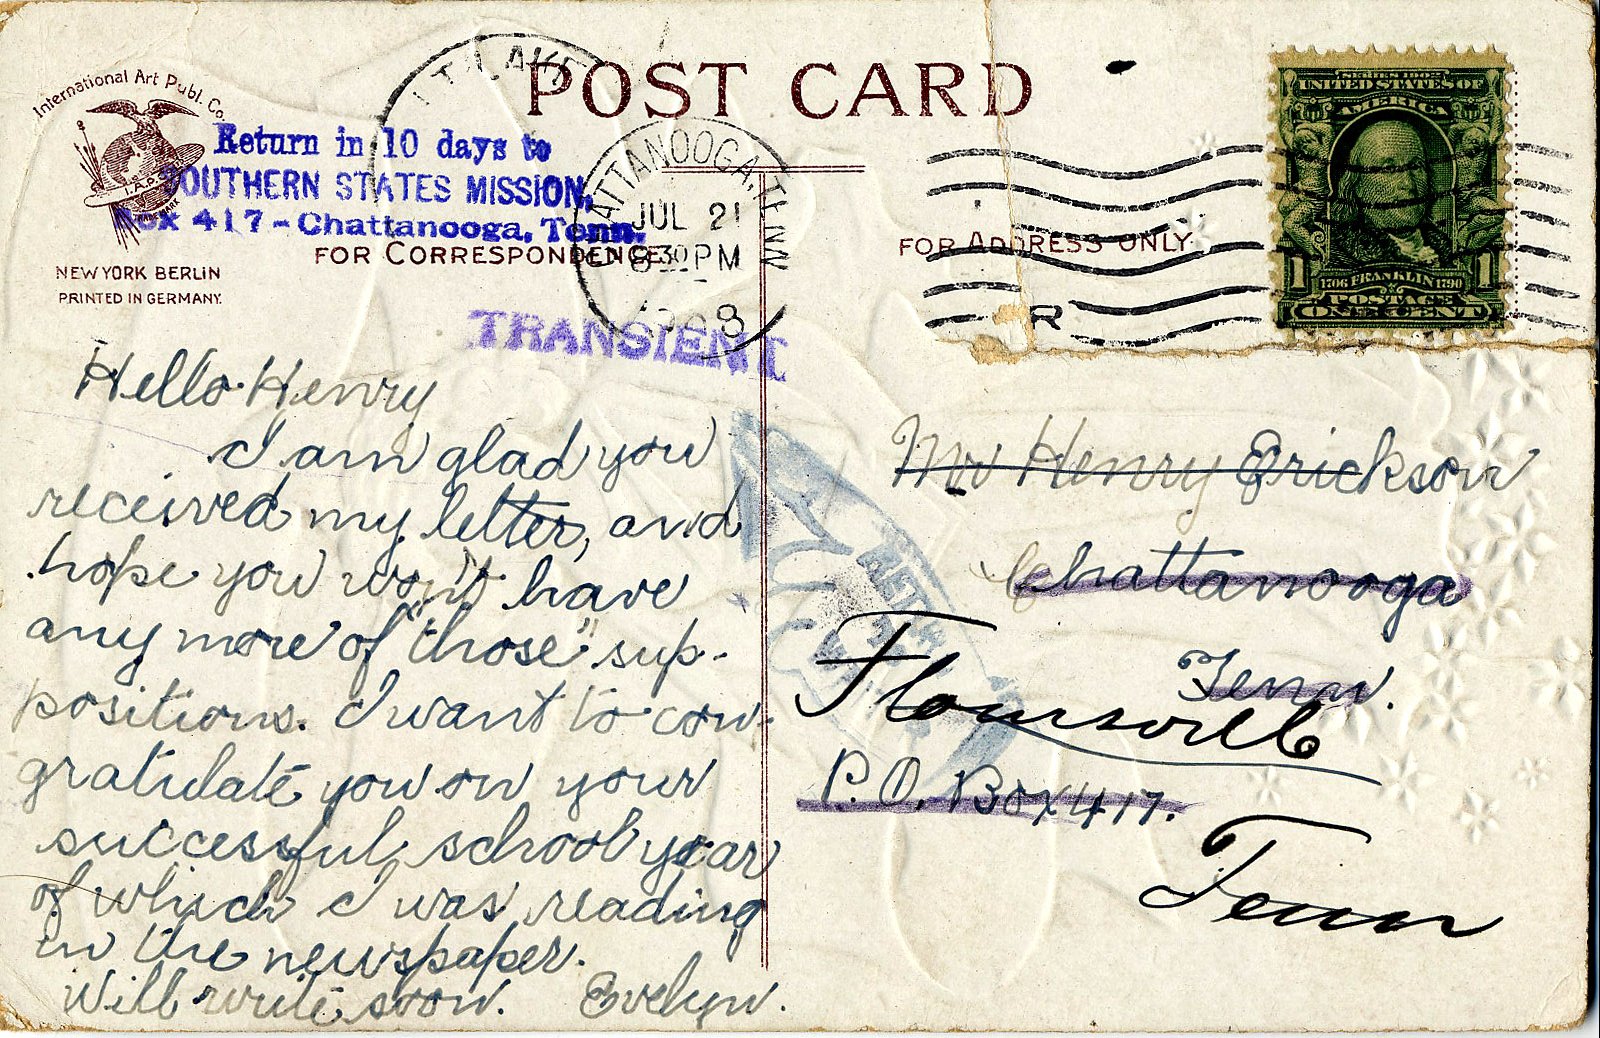 POST CARD
International Art Publ. Co.
I.A.P.
TRADE MARK
NEW YORK BERLIN
PRINTED IN GERMANY.
T LAKE
Return in 10 days to
SOUTHERN STATES MISSION,
Box 417 - Chattanooga, Tenn.
FOR CORRESPONDENCE
ATTANOOGA, TENN
JUL 21
8 30 PM
1908
TRANSIENT
FOR ADDRESS ONLY
R
SERIES 1902
UNITED STATES OF
AMERICA
1 1706 FRANKLIN 1790 1
POSTAGE
ONE CENT
Hello Henry
I am glad you
received my letter, and
hope you won't have
any more of "those" sup-
positions. I want to con-
gratulate you on your
successful school year
of which I was reading
in the newspaper.
Will write soon. Evelyn.
Mr Henry Erickson
Chattanooga
Tenn.
P.O. Box 417.
Tenn